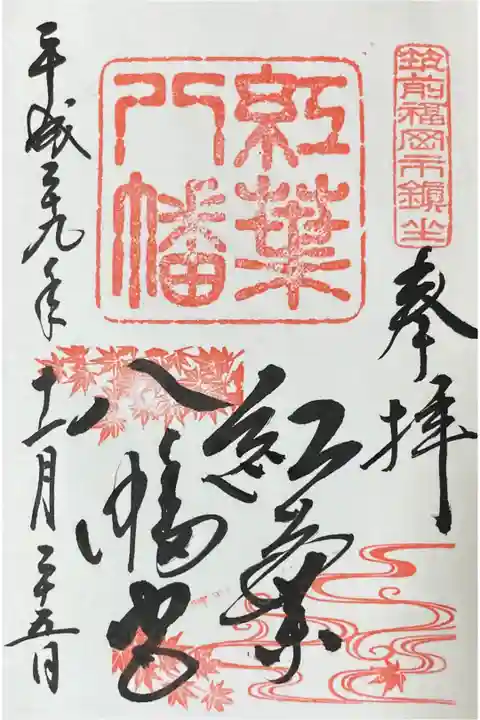 筑前福岡市鎮坐
奉拝
紅葉
八幡
紅葉
八幡宮
平成二十九年十一月二十五日